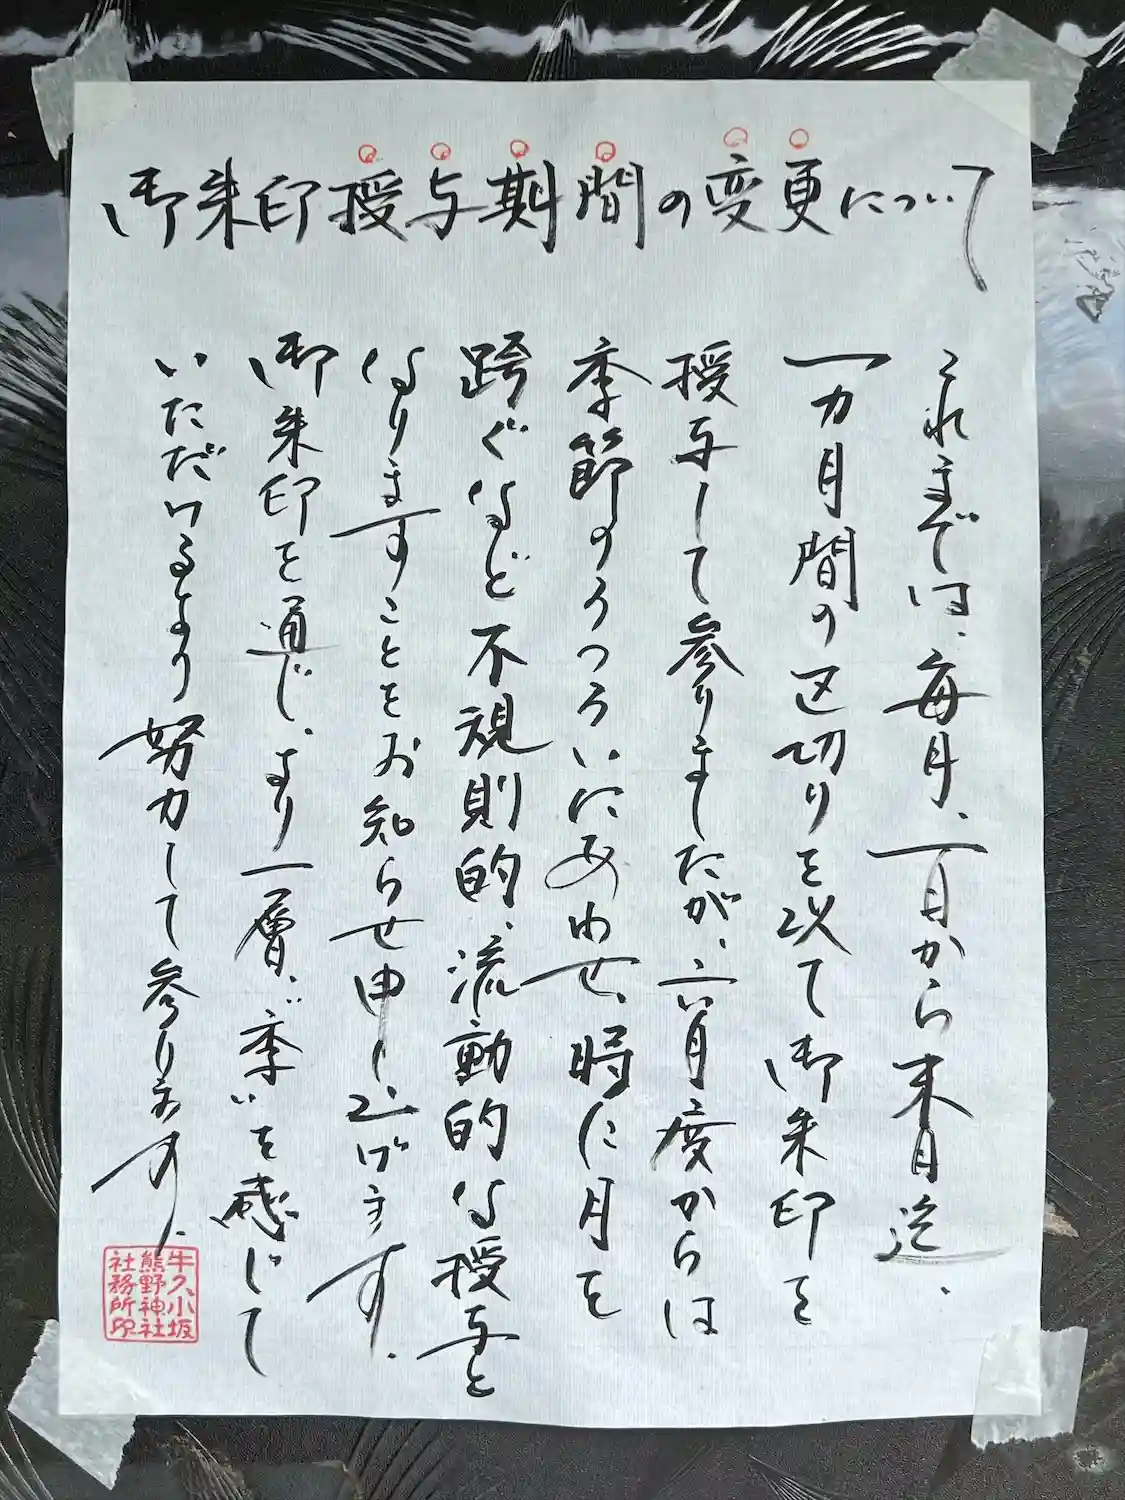 御朱印授与期間の変更について
これまでは、毎月、一日から末日迄、
一カ月間の区切りを以て御朱印を
授与して参りましたが、六月度からは
季節のうつろいにあわせ、時に月を
跨ぐなど不規則的、流動的な授与と
なりますことをお知らせ申し上げます。
御朱印を通じ、より一層、〝季〟を感じて
いただけるよう努力して参ります。
牛久小坂
熊野神社
社務所印